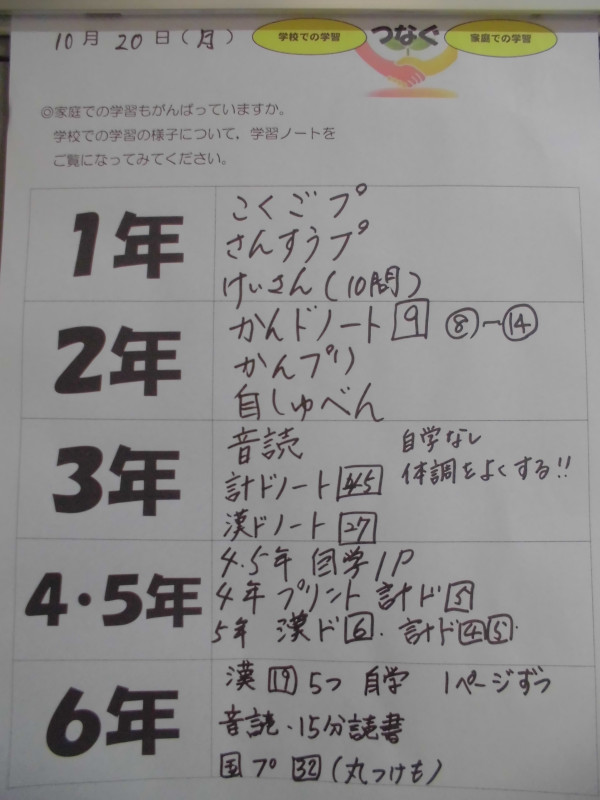 10月 20日(月)
学校での学習 つなぐ 家庭での学習
◎家庭での学習もがんばっていますか。
学校での学習の様子について、学習ノートを
ご覧になってみてください。
1年
こくごプ
さんすうプ
けいさん(10問)
2年
かんドノート 9 ⑧~⑭
かんプリ
自しゅべん
3年
音読 自学なし
計ドノート 45 体調をよくする!!
漢ドノート 27
4・5年
4.5年 自学1P
4年 プリント 計ド 5
5年 漢ド 6 . 計ド 4 5 .
6年
漢 19 5つ 自学 1ページずつ
音読・15分読書
国プ 32 (丸つけも)